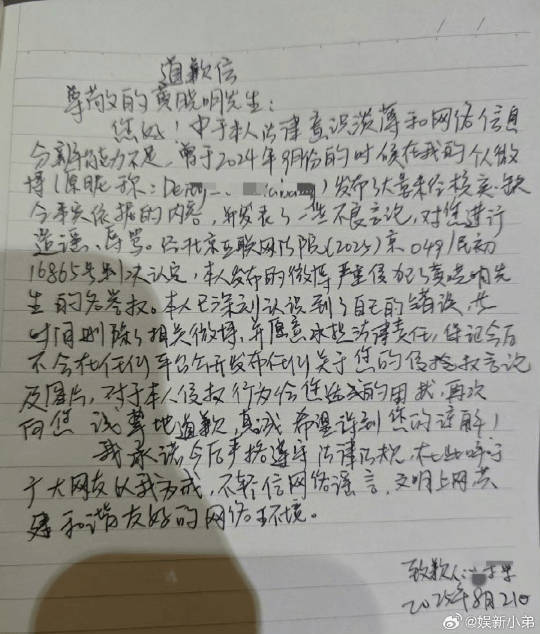 道歉信
尊敬的黄晓明先生:
您好!由于本人法律意识淡薄和网络信息
分辨能力不足,曾于2024年8月份的时候在我的个人微
博(原昵称: ) 发布了大量未经核实、缺
合事实依据的内容,并发表了一些不良言论,对您进行
造谣、辱骂。经北京互联网法院(2025)京0491民初
16865号判决认定,本人发布的微博严重侵犯了黄晓明先
生的名誉权。本人已深刻认识到了自己的错误,
时间删除了相关微博,并愿意承担法律责任,保证今后
不会在任何平台公开发布任何关于您的侵权言论
及图片,对于本人侵权行为给您造成的困扰,再次
向您诚挚地道歉,真诚希望得到您的谅解!
我承诺今后严格遵守法律法规,在此呼吁
广大网友以我为戒,不轻信网络谣言,文明上网共
建和谐友好的网络环境。
致歉人:
2025年8月21日
@娱新小弟